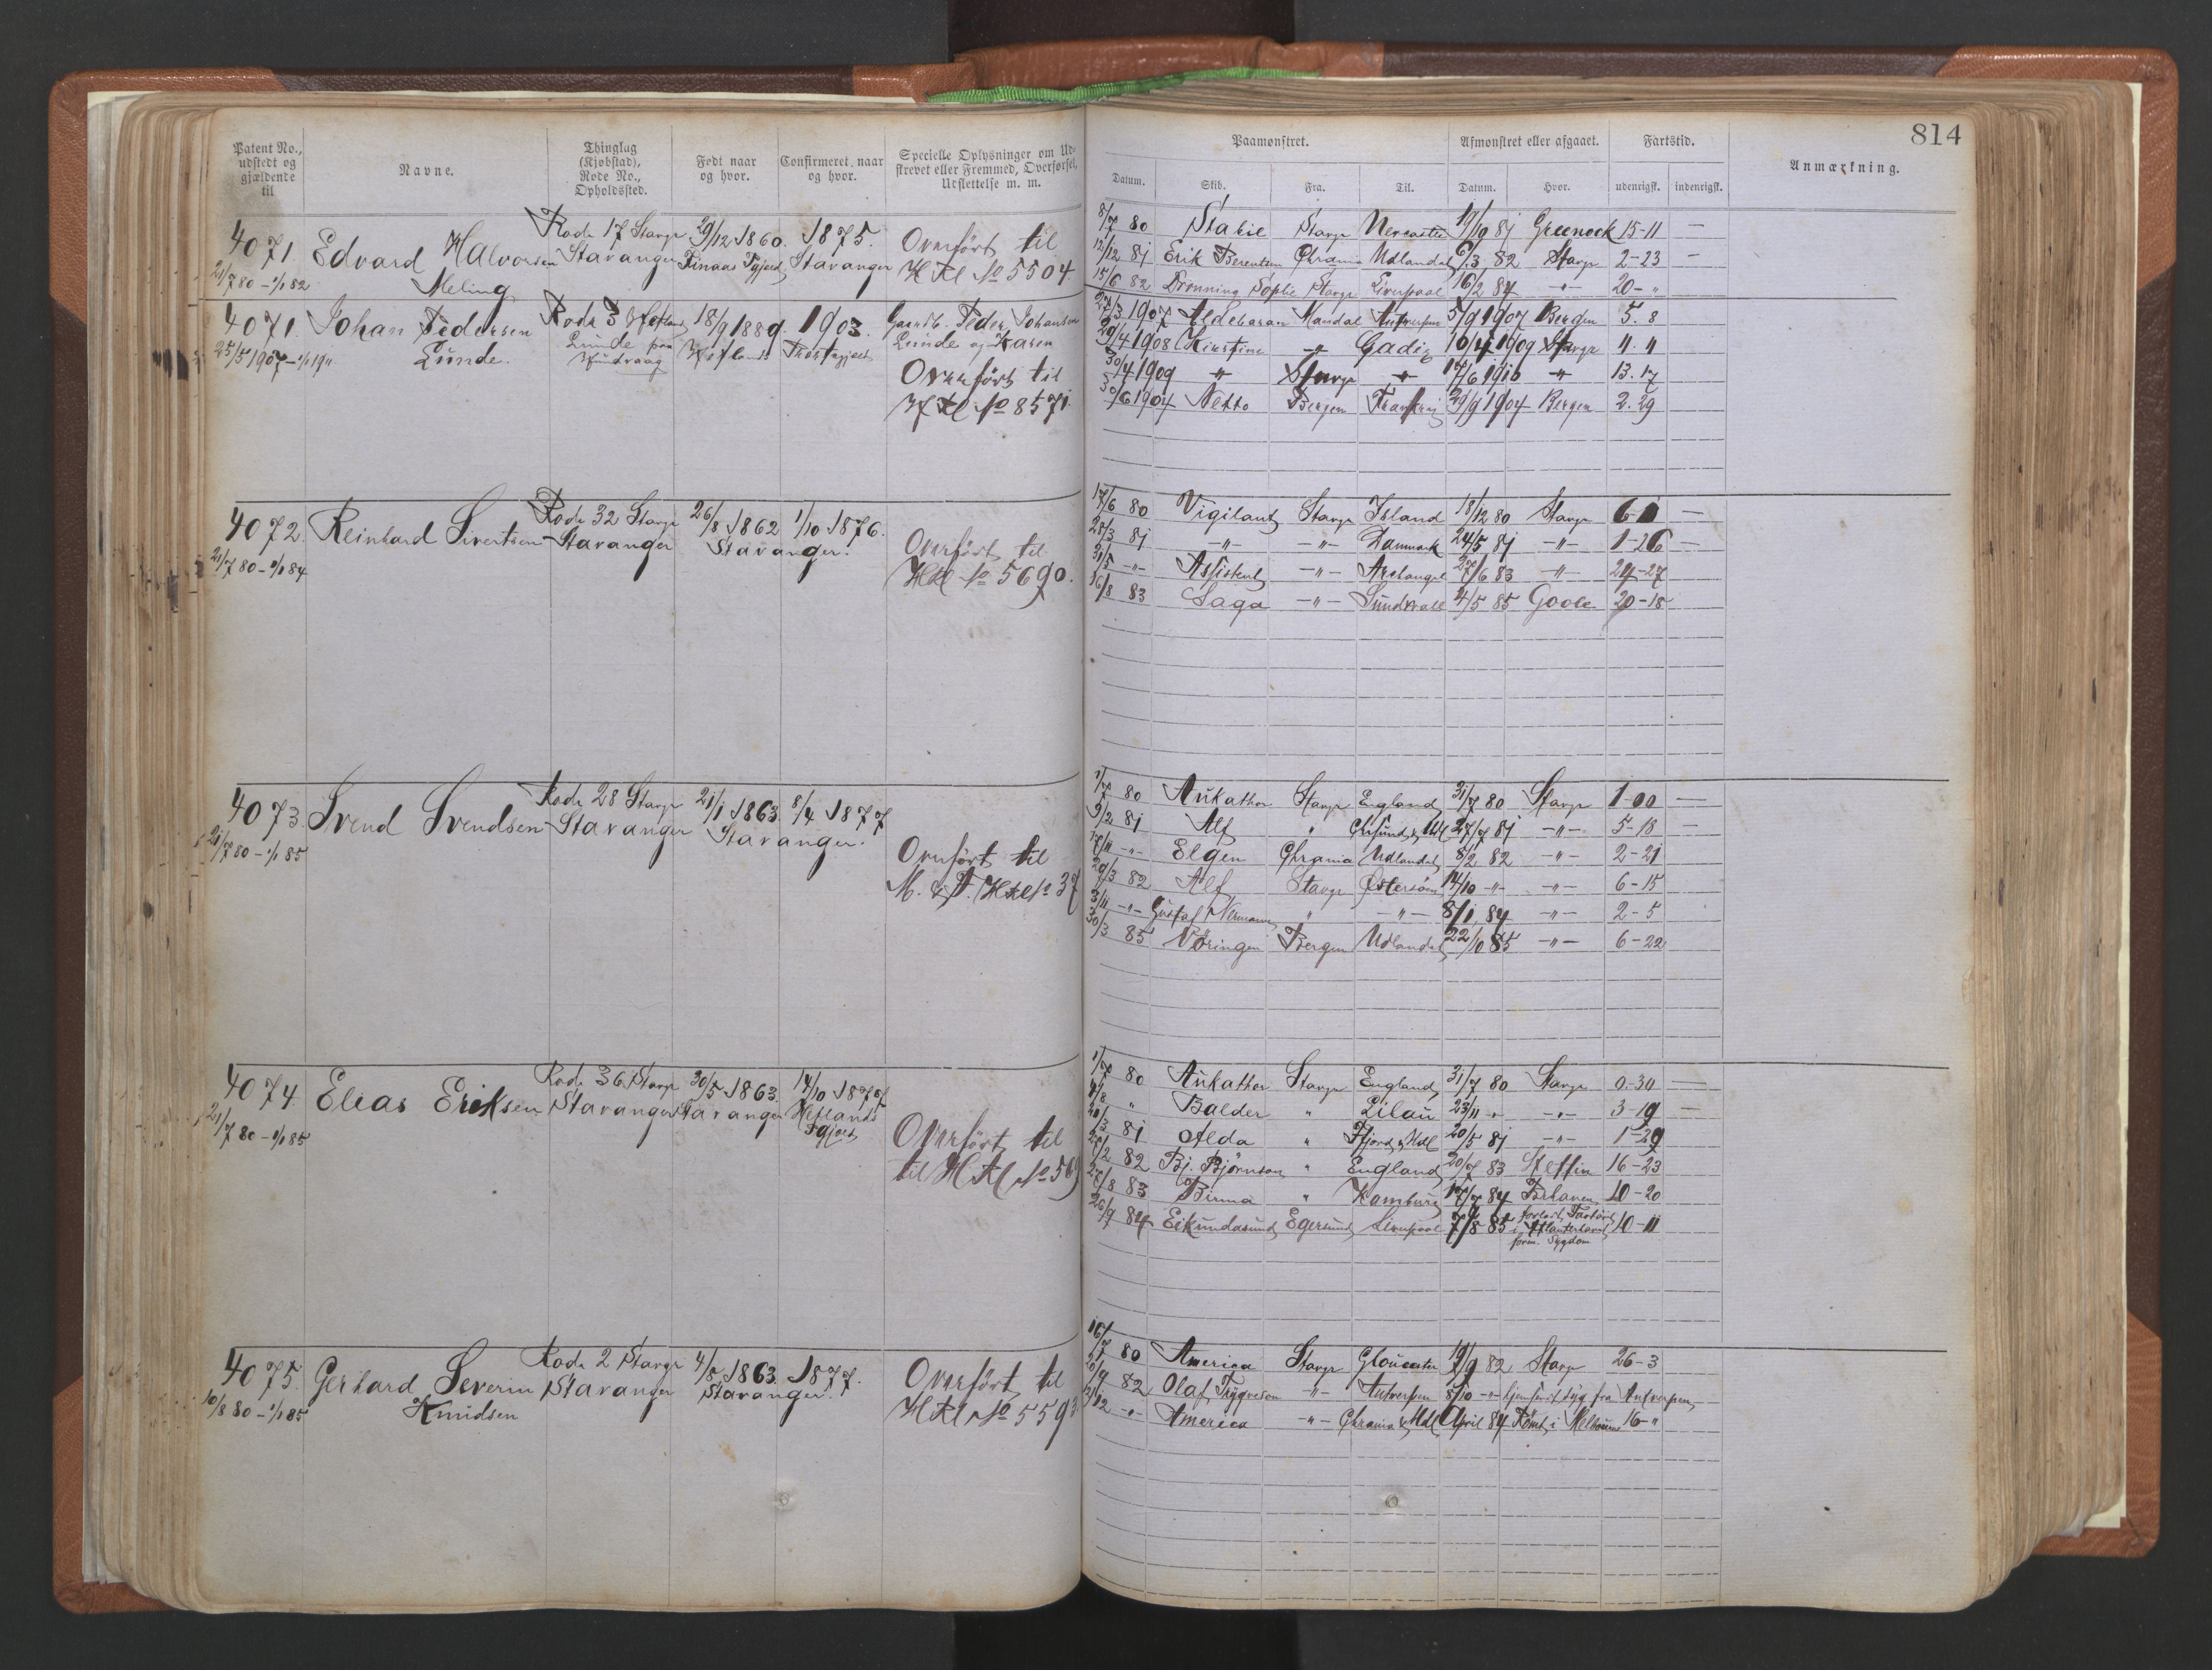 814
Patent No., udstedt og gjældende til
Navne.
Thinglag (Kjøbstad), Rode No., Opholdssted.
Født naar og hvor.
Confirmeret, naar og hvor.
Specielle Oplysninger om Udskrevet eller Fremmed, Overførsel, Udslettelse m. m.
Paamønstret.
Datum. Skib. Fra. Til.
Afmønstret eller afgaaet.
Datum. Hvor.
Fartstid.
udenrigsk. indenrigsk.
Anmærkning.
4071. Edvard Halvorsen Meling
21/7 80 - 1/1 82
Rode 17 Stavgr Stavanger
29/12 1860.
1875. Stavanger
Overført til HRl No 5504.
8/7 80 Stavgr 19/9 81 Greenock 15-11 —
12/12 81 Erik Berentsen Chrania Udlandet 6/3 82 Stavgr 2-23 —
15/6 82 Dronning Sophie Stavgr Liverpool 16/2 84 -"- 20-"
4071. Johan Pedersen Lunde.
25/5 1907 - 1/1 19"
Rode 3 Hetland Lunde paa
18/9 1889. Hetland
1903.
Gaardb. Peder Johansen Lunde og Karen
Overført til HRl No 8571.
27/3 1907 Aldebaran Mandal Antwerpen 5/9 1907 Bergen 5. 8
29/4 1908 Kirstine -"- Cadiz 10/4 1909 Stavgr 11. 11
30/4 1909 " Stavgr " 17/6 1910 " 13. 17
30/6 1904 Netto Bergen Frankrig 29/9 1904 Bergen 2. 29
4072. Reinhard Sivertsen
21/7 80 - 1/1 84
Rode 32 Stavgr Stavanger
26/8 1862 Stavanger.
1/10 1876.
Overført til HRl No 5690.
17/6 80 Vigilant Stavgr Island 18/12 80 Stavgr —
28/3 81 -"- -"- Danmark 24/5 81 -"- 1-26 —
31/5 -"- Assistent -"- Archangel 27/6 83 -"- 24-27
16/8 83 Saga -"- Sundsvall 4/5 85 Goole 20-18
4073. Svend Svendsen
21/7 80 - 1/1 85
Rode 28 Stavgr Stavanger
21/1 1863. Stavanger.
8/4 1877
Overført til M. & F. HRl No 37
1/7 80 Aukathor Stavgr England 31/7 80 Stavgr 1-00 —
9/2 81 Alf " Chrsund & Udl 27/7 81 -"- 5-18 —
17/11 -"- Elgen Chrania Udlandet 8/2 82 -"- 2-21
29/3 82 Alf Stavgr Østersøen 14/10 -"- -"- 6-15
3/11 -"- Gustaf " -"- 8/1 84 -"- 2-5
30/3 85 Vöringen Bergen Udlandet 22/10 85 -"- 6-22
4074. Elias Eriksen
21/7 80 - 1/1 85
Rode 36 Stavgr Stavanger
30/5 1863. Stavanger
14/10 1878 Hetlands Pgjeld
Overført til til HRl No 569
1/7 80 Aukathor Stavgr England 31/7 80 Stavgr 0.30 —
4/8 " Balder " Libau 23/11 -"- -"- 3-19 —
20/3 81 Alda " Fjord & Udl 20/5 81 -"- 1-29
28/2 82 Bj. Björnson " England 20/7 83 Stettin 16-23
27/8 83 Birma " Hamburg 17/7 84 10-20
26/9 84 Eikundasund Egersund Liverpool 7/8 85 forlodt Fartöiet i Atlanterhavet form. Sygdom 10-11
4075. Gerhard Severin Knudsen
10/8 80 - 1/1 85
Rode 2 Stavgr Stavanger
4/8 1863. Stavanger.
1877.
Overført til HRl No 5593
16/7 80 America Stavgr Gloucester 19/9 82 Stavgr 26-3
20/9 82 Olaf Trygveson -"- Antverpen 8/10 -"- hjemsendt syg fra Antverpen
12/12 -"- America -"- Chrania & Udl April 84 Rømt i Melbourne 16-"